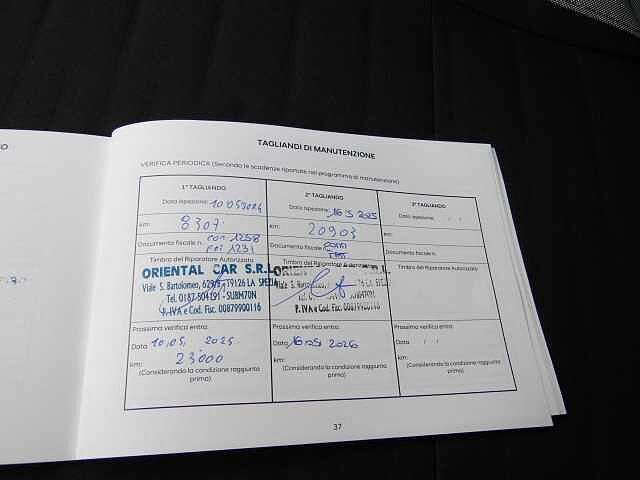 TAGLIANDI DI MANUTENZIONE
VERIFICA PERIODICA (Secondo le scadenze riportate nel programma di manutenzione)
1° TAGLIANDO
Data ispezione: 10 05 2024
km: 8307
Documento fiscale n. com 1258
1231
Timbro del Riparatore Autorizzato
ORIENTAL CAR S.R.L.
Viale S. Bartolomeo, 19126 LA SPEZIA
Tel. 0187 504191 - SUBM70N
P. IVA e Cod. Fisc. 00879900116
Prossima verifica entro:
Data 10.05. 2025.
km: 23000
(Considerando la condizione raggiunta prima)
2° TAGLIANDO
Data ispezione: 16 5 2025
km: 20903
Documento fiscale
Timbro del Riparatore Autorizzato
ORIEN
Viale S.
P. IVA e Cod. Fisc. 00879900116
Prossima verifica entro:
Data 16 05 2026
km:
(Considerando la condizione raggiunta prima)
3° TAGLIANDO
Data ispezione: / /
km:
Documento fiscale n.
Timbro del Riparatore Autorizzato
Prossima verifica entro:
Data / /
km:
(Considerando la condizione raggiunta prima)
37